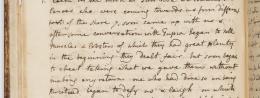 canoes who were coming towards us from different
parts of the shore, soon came up with us &
after some conversation with Tupia began to sell
Muscles & lobsters of which they had great plenty
in the beginning they dealt fair but soon began
to cheat taking what we gave them without
making any returns one who had done so on being
threatned began to defy us & laugh on which